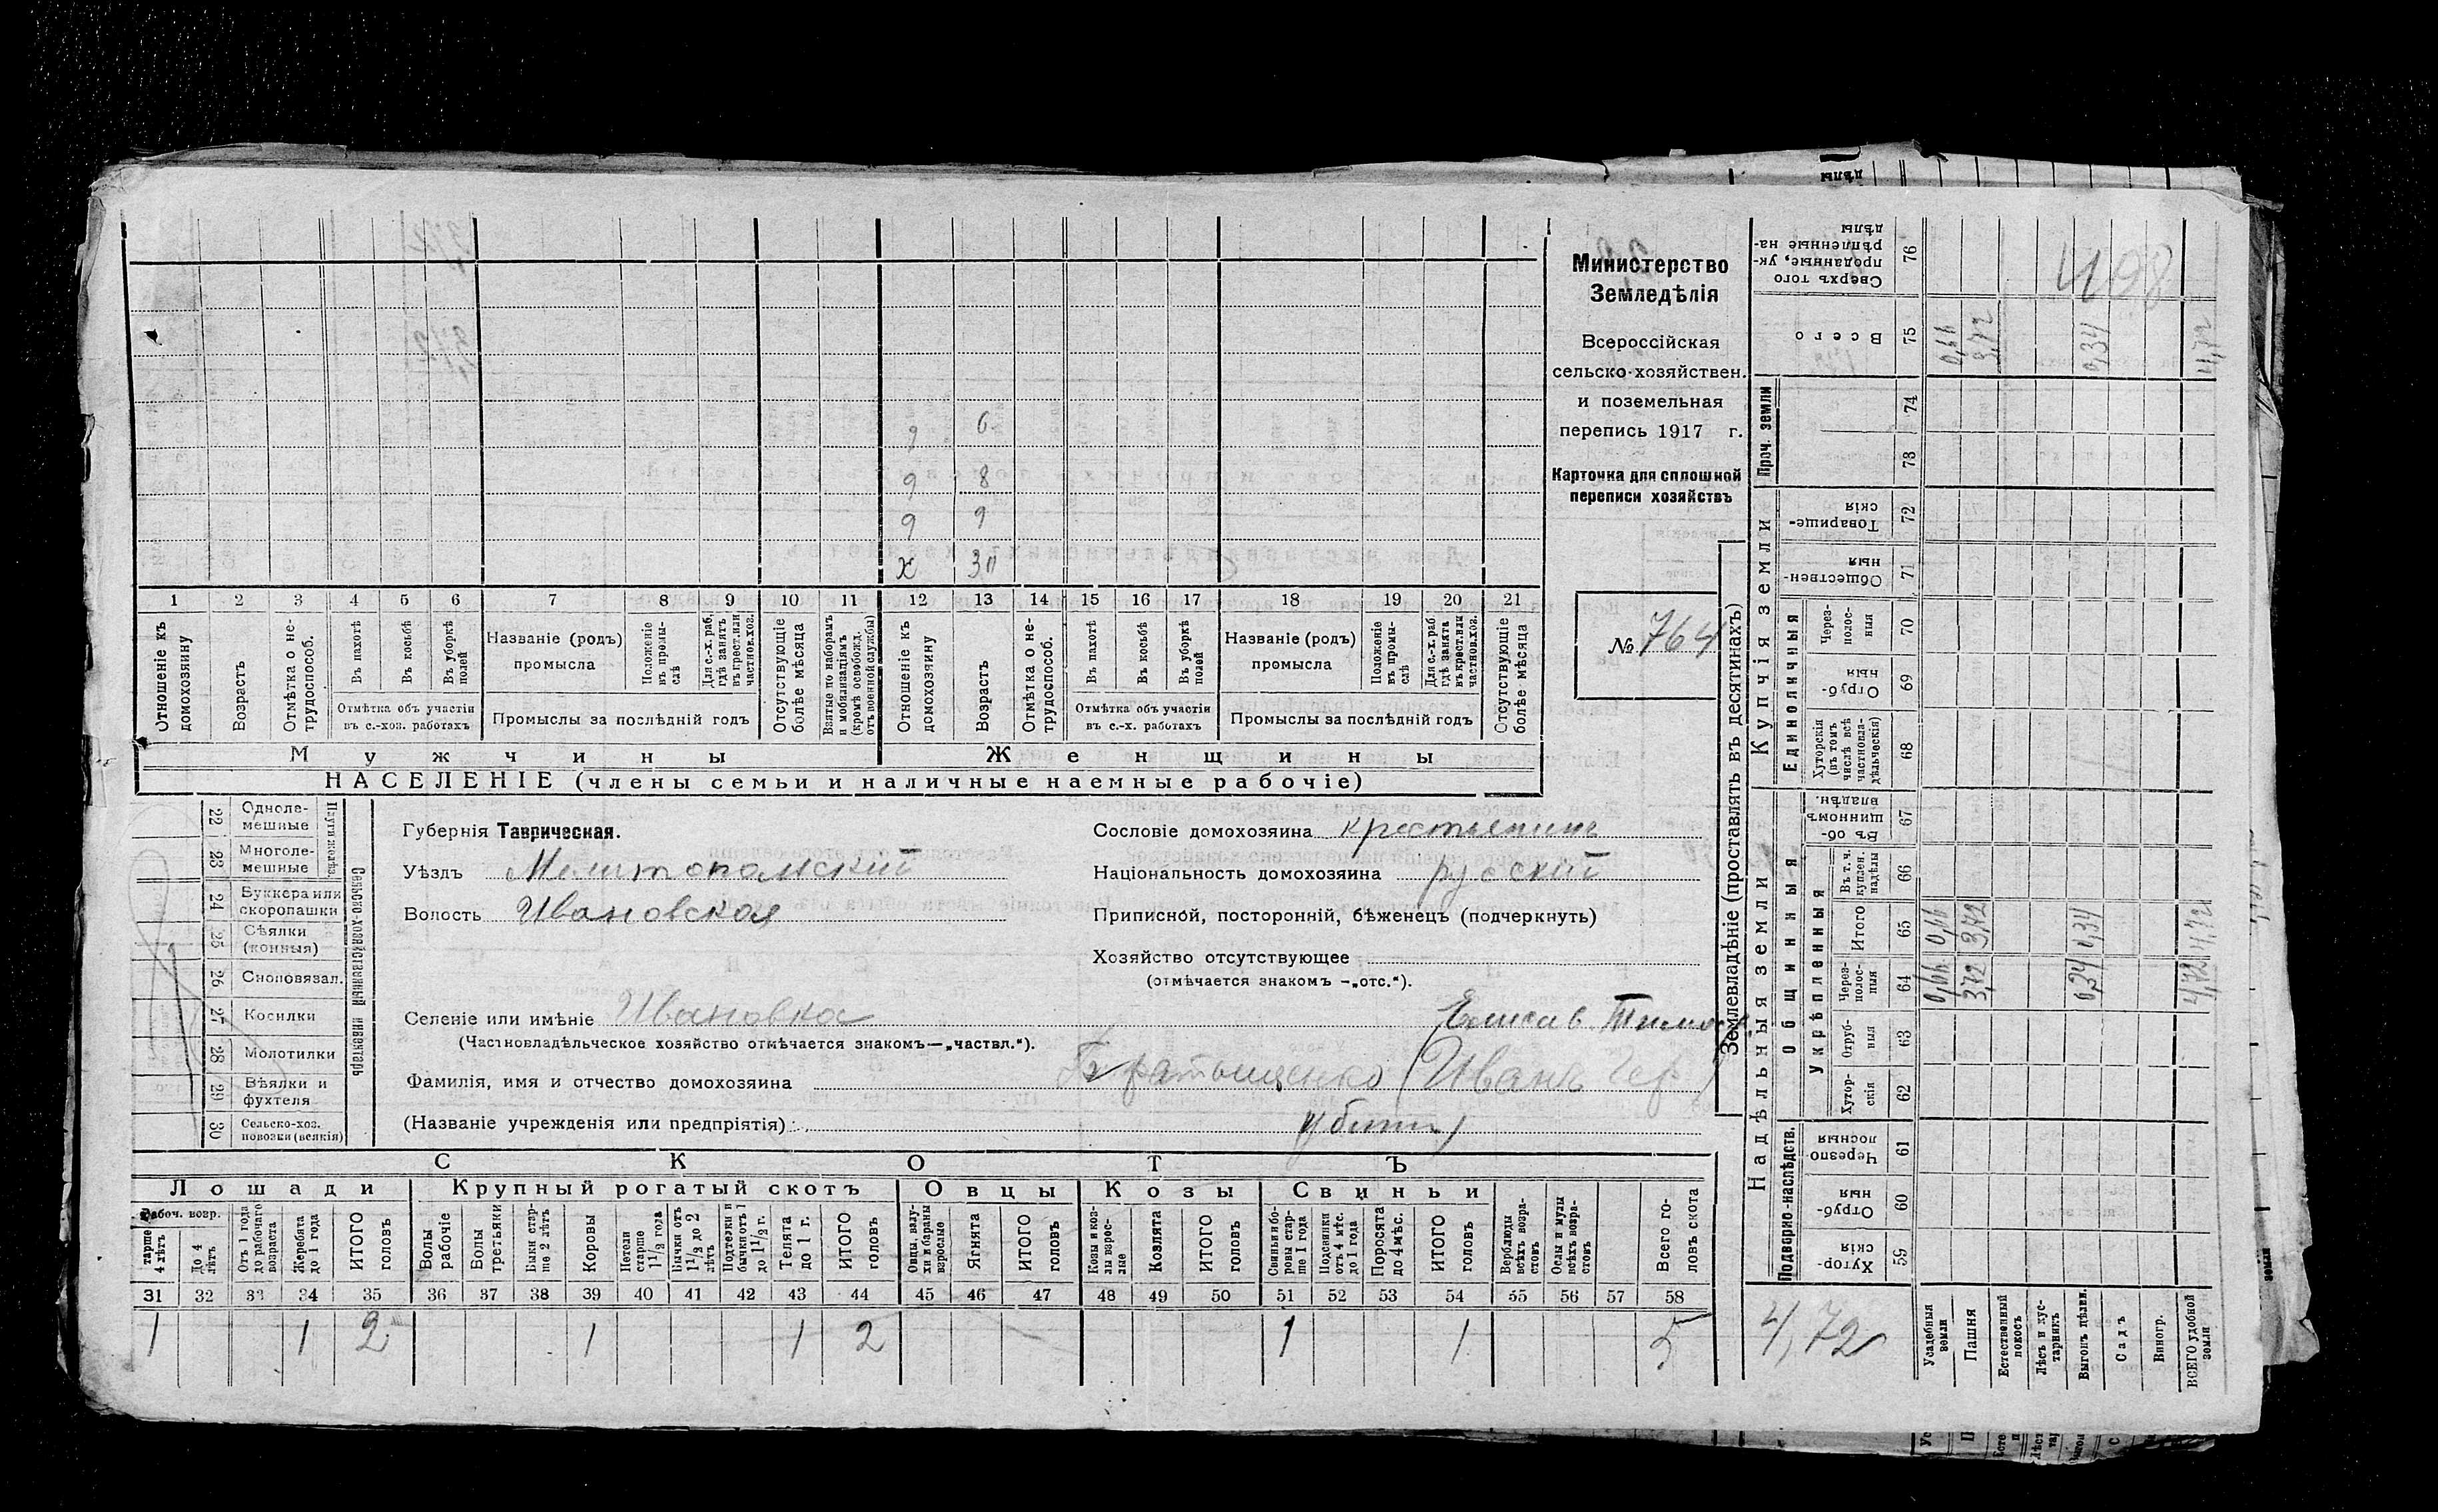 Министерство
Земледѣлія
Всероссійская
сельско-хозяйствен.
и поземельная
перепись 1917 г.
Карточка для сплошной
переписи хозяйствъ
№ 764
9 6
9 8
9 9
х 30
1 2 3 4 5 6 7 8 9 10 11 12 13 14 15 16 17 18 19 20 21
Отношеніе къ домохозяину
Возрастъ
Отмѣтка о нетрудоспособ.
Въ пахотѣ
Въ косьбѣ
Въ уборкѣ полей
Отмѣтка объ участіи въ с.-хоз. работахъ
Названіе (родъ) промысла
Положеніе въ промыслѣ
Для с.-х. раб. гдѣ занятъ въ крест. или частнов. хоз.
Промыслы за послѣдній годъ
Отсутствующіе болѣе мѣсяца
Взятые по наборамъ и мобилизаціямъ (кромѣ освобожд. отъ военной службы)
Отношеніе къ домохозяину
Возрастъ
Отмѣтка о нетрудоспособ.
Въ пахотѣ
Въ косьбѣ
Въ уборкѣ полей
Отмѣтка объ участіи въ с.-х. работахъ
Названіе (родъ) промысла
Положеніе въ промыслѣ
Для с.-х. раб. гдѣ занята въ крест. или частнов. хоз.
Промыслы за послѣдній годъ
Отсутствующіе болѣе мѣсяца
Мужчины Женщины
НАСЕЛЕНІЕ (члены семьи и наличные наемные рабочіе)
Сельско-хозяйственный инвентарь
22 Однолемешные
23 Многолемешные
24 Буккера или скоропашки
25 Сѣялки (конныя)
26 Сноповязал.
27 Косилки
28 Молотилки
29 Вѣялки и фухтеля
30 Сельско-хоз. повозки (всякія)
Губернія Таврическая.
Уѣздъ Мелитопольский
Волость Ивановская
Сословіе домохозяина крестьянинъ
Національность домохозяина русскій
Приписной, посторонній, бѣженецъ (подчеркнуть)
Хозяйство отсутствующее
(отмѣчается знакомъ —„отс.“).
Селеніе или имѣніе Ивановка
(Частновладѣльческое хозяйство отмѣчается знакомъ—„частвл.“).
Елисав. Тимоф.
Фамилія, имя и отчество домохозяина Братыщенко (Иванъ
(Названіе учрежденія или предпріятія): убитъ)
СКОТЪ
Лошади Крупный рогатый скотъ Овцы Козы Свиньи
Рабоч. возр.
старше 4 лѣтъ
До 4 лѣтъ
Отъ 1 года до рабочаго возраста
Жеребята до 1 года
ИТОГО головъ
Волы рабочіе
Волы третьяки
Быки старше 2 лѣтъ
Коровы
Нетели старше 1½ года
Бычки отъ 1½ до 2 лѣтъ
Подтелки и бычки отъ 1 до 1½ г.
Телята до 1 г.
ИТОГО головъ
Овцы, валухи и бараны взрослые
Ягнята
ИТОГО головъ
Козы и козлы взрослые
Козлята
ИТОГО головъ
Свиньи и боровы старше 1 года
Подсвинки отъ 4 мѣс. до 1 года
Поросята до 4 мѣс.
ИТОГО головъ
Верблюды всѣхъ возрастовъ
Ослы и мулы всѣхъ возрастовъ
Всего головъ скота
31 32 33 34 35 36 37 38 39 40 41 42 43 44 45 46 47 48 49 50 51 52 53 54 55 56 57 58
1 1 2 1 1 2 1 1 5
Землевладѣніе (проставлять въ десятинахъ)
Купчія земли
Надѣльныя земли
Проч. земли
Единоличныя
Общинныя
Укрѣпленныя
Подворно-наслѣдств.
Сверхъ того проданные, укрѣпленные надѣлы 76
Всего 75 0,66 3,72 0,34 4,72
74
73
Товарищескія 72
Общественныя 71
Черезполосныя 70
Отрубныя 69
Хуторскія (въ томъ числѣ всѣ частновладѣльческія) 68
Въ общинномъ владѣн. 67
Въ т. ч. куплен. надѣлы 66
Итого 65 0,66 3,72 0,34 4,72
Черезполосныя 64 0,66 3,72 0,34 4,72
Отрубныя 63
Хуторскія 62
Черезполосныя 61
Отрубныя 60
Хуторскія 59
Усадебныя земли
Пашня
Естественный покосъ
Лѣсъ и кустарникъ
Выгонъ дѣлен.
Садъ
Виногр.
ВСЕГО удобной земли
4,72